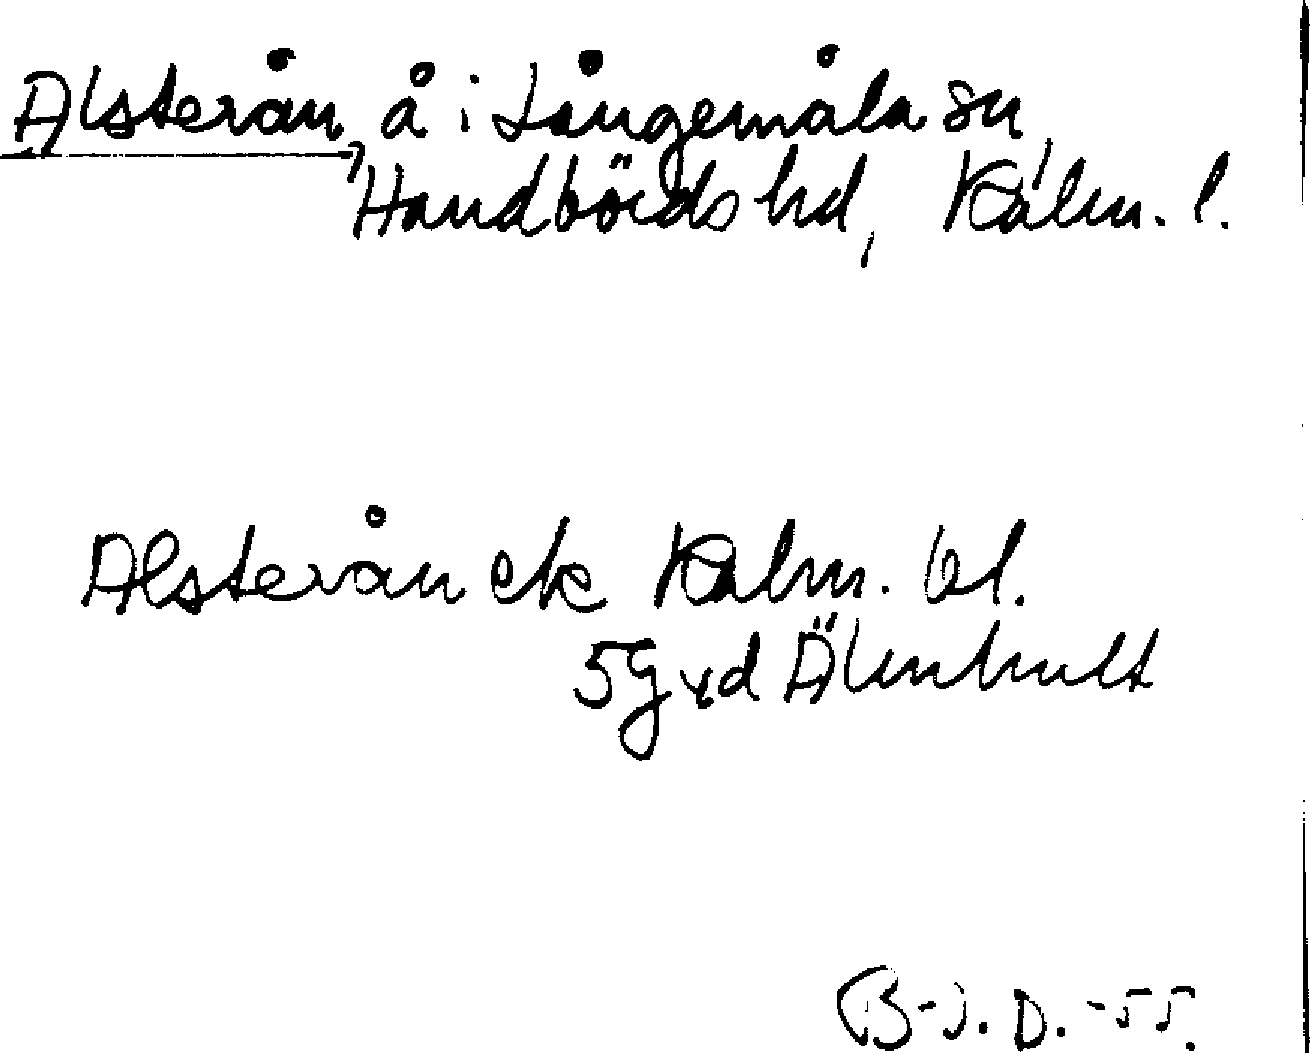 Alsterån, å i Långemåla sn,
Handbörds hd, Kalm. l.
Alsterån ek Kalm. bl.
5g vd Älmhult
B-J. D. -55.